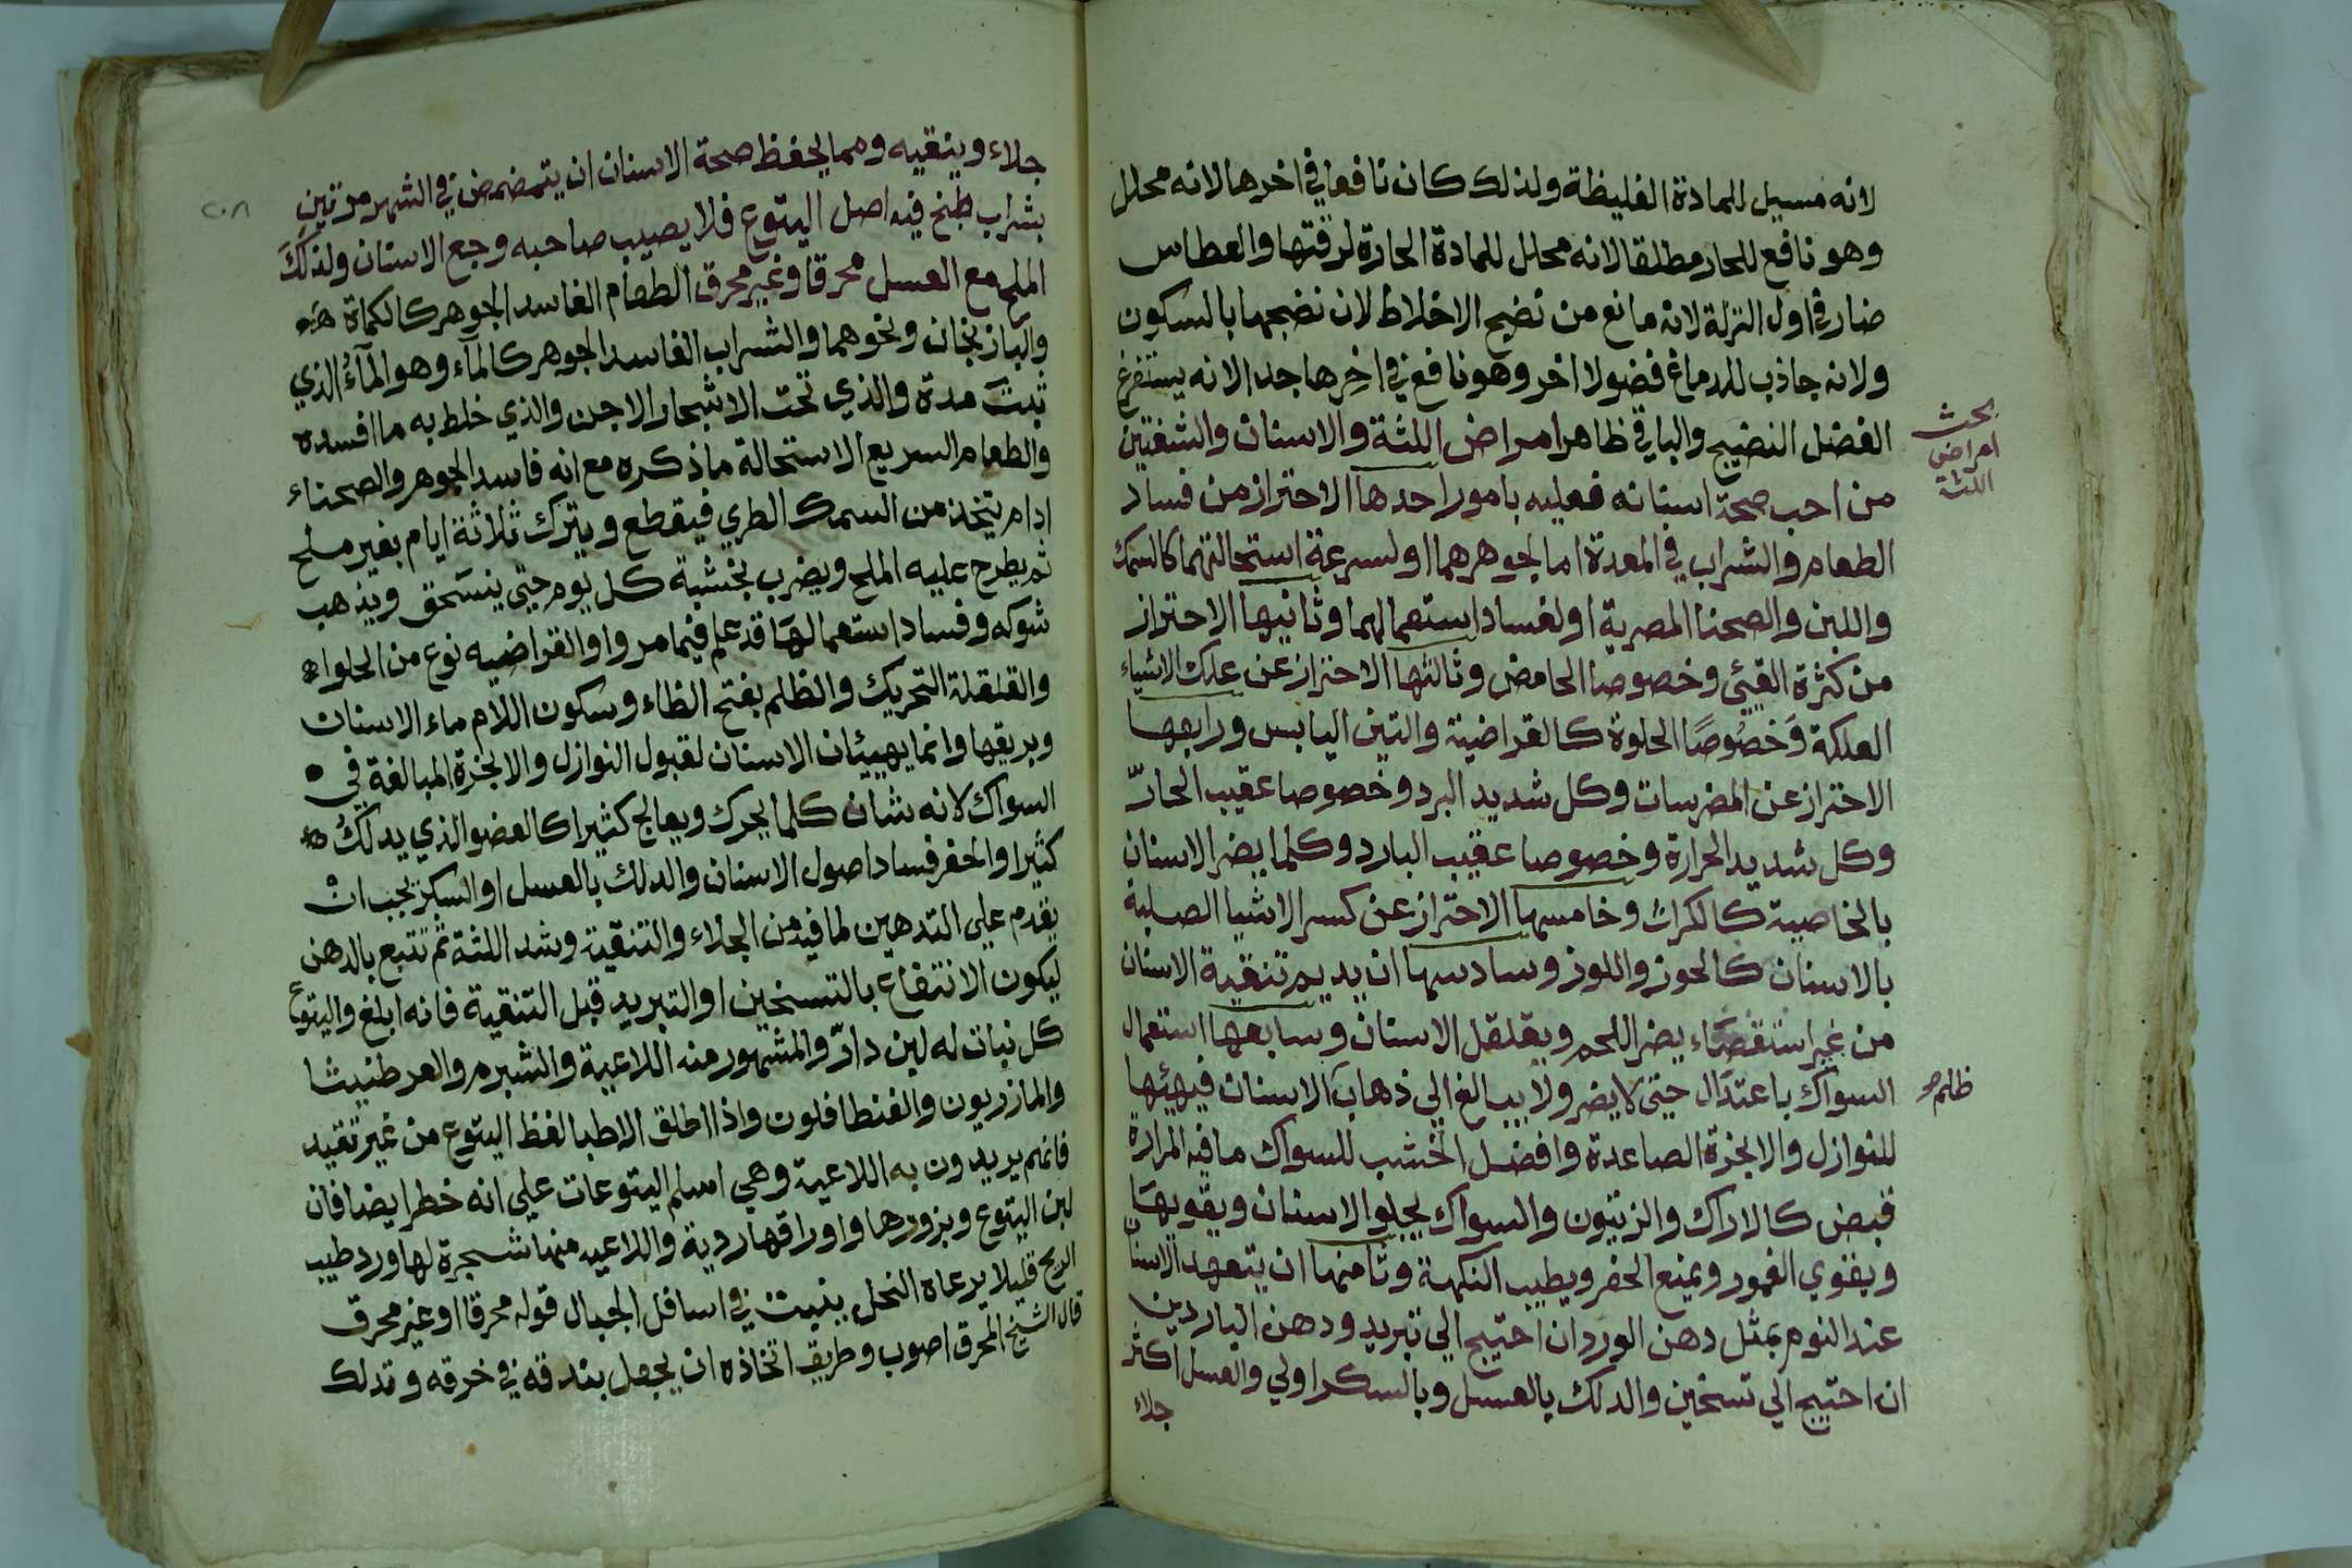 لانه مسيل للمادة الغليظة ولذلك كان نافعا في اخرها لانه محلل
وهو نافع للحار مطلقا لانه محلل للمادة الحارة لرقتها والعطاس
ضار في اول النزلة لانه مانع من نضيج الاخلاط لان نضجها بالسكون
ولانه جاذب للدماغ فضولا اخر وهو نافع في اخرها جدا لانه يستفرغ
الفضل النضيج والباقي ظاهر امراض اللثة والاسنان والشفتين
بحث
امراض
اللثة
من احب صحة اسنانه فعليه بامور احدها الاحتراز من فساد
الطعام والشراب في المعدة اما لجوهرهما او لسرعة استحالتهما كالسمك
واللبن والصحنا المصرية او لفساد استعمالهما وثانيها الاحتراز
من كثرة القيئ وخصوصا الحامض وثالثها الاحتراز عن علك الاشياء
العلكة وَخصُوصًا الحلوة كالقراضية والتين اليابس ورابعها
الاحتراز عن المضرسات وكل شديد البرد وخصوصا عقيب الحارّ
وكل شديد الحرارة وخصوصا عقيب البارد وكلما يضر الاسنان
بالخاصية كالكراث وخامسها الاحتراز عن كسر الاشيا الصلبة
بالاسنان كالجوز واللوز وسادسها ان يديم تنقية الاسنان
من غير استقصَاء يضر اللحم ويقلقل الاسنان وسابعها استعمال
السواك باعتدال حتى لا يضر ولا يبالغ الي ذهاب الاسنان فيهيئها
ظلم
للنوازل والابخرة الصاعدة وافضل الخشب للسواك ما فيه المرارة
قبض كالاراك والزيتون والسواك يجلو الاسنان ويقويها
ويقوي العمور ويمنع الحفر ويطيب النكهة وثامنها ان يتعهد الاسنان
عند النوم بمثل دهن الورد ان احتيج الي تبريد ودهن الباردين
ان احتيج الي تسخين والدلك بالعسل وبالسكر اولي والعسل اكثر
جلاء
٢٠٨
جلاء وينقيه ومما يحفظ صحة الاسنان ان يتمضمض في الشهر مرتين
بشراب طبخ فيه اصل اليتوع فلا يصيب صاحبه وجع الاسنان ولذلك
الملح مع العسل محرقا وغير محرق الطعام الفاسد الجوهر كالكماة
والباذنجان ونحوهما والشراب الفاسد الجوهر كالمآء وهو المآءُ الذي
ثبت مدة والذي تحت الاشجار الاجن والذي خلط به ما افسده
والطعام السريع الاستحالة ما ذكره مع انه فاسد الجوهر والصحناء
ادام يتخذ من السمك الطري فيقطع ويترك ثلاثة ايام بغير ملح
ثم يطرح عليه الملح ويضرب بخشبة كل يوم حتى ينسَحق ويذهب
شوكه وفساد استعمالها قد علم فيما مر واو القراضيه نوع من الحلواء
والقلقلة التحريك والظلم بفتح الظاء وسكون اللام ماء الاسنان
وبريقها وانما يهييئان الاسنان لقبول النوازل والابخرة المبالغة في
السواك لانه شان كلما يحرك ويعالج كثيرا كالعضو الذي يدلك
كثيرا والحفر فساد اصول الاسنان والدلك بالعسل او السكر يجب ان
يقدم علي التدهين لما فيه من الجلاء والتنقية وشد اللثة ثم تتبع بالدهن
ليكون الانتفاع بالتسخين او التبريد قبل التنقية فانه ابلغ واليتوع
كل نبات له لبن دارّ والمشهور منه اللاعبة والشبرم والعرطنيثا
والمازريون والفنطافلون واذا اطلق الاطبا لفظ اليتوع من غير تقييد
فانهم يريدون به اللاعية وهي اسلم اليتوعات علي انه خطر ايضا فان
لبن اليتوع وبزورها واوراقها ردية واللاعيه منها شجرة لها ورد طيب
الريح قليلا يرعاه النحل ينبت في اسافل الجبال قوله محرقا او غير محرق
قال الشيخ المحرق اصوب وطريق اتخاذه ان يجعل بندقه في خرقه وتدلك